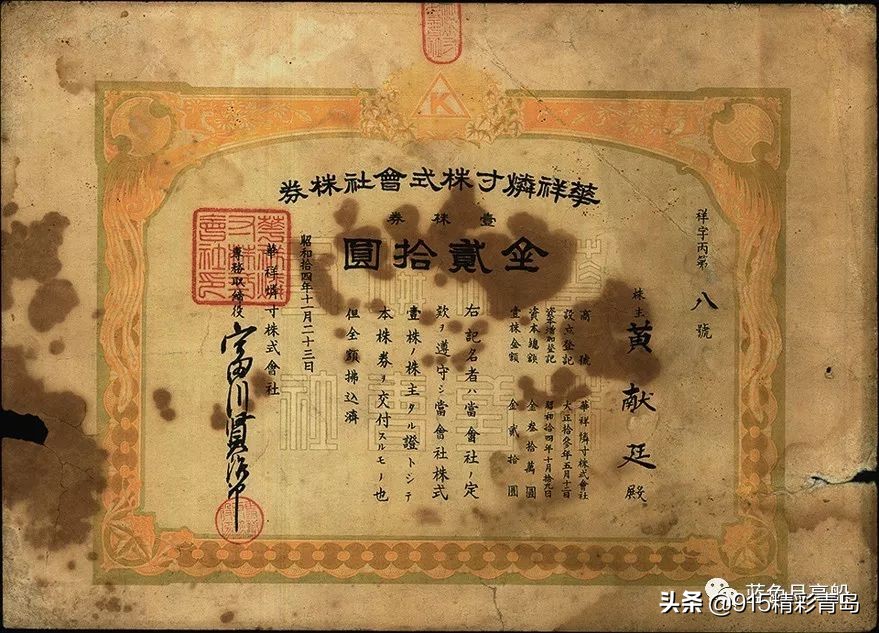 華祥燐寸株式會社株券
壹株券
金貳拾圓
祥字丙第八號
株主 黄献廷殿
商號 華祥燐寸株式會社
設立登記 大正拾參年五月十二日
資本增加登記 昭和拾四年十月拾九日
資本總額 金叁拾萬圓
壹株金額 金貳拾圓
右記名者ハ當會社ノ定
款ヲ遵守シ當會社株式
壹株ノ株主タル證トシテ
本株券ヲ交付スルモノ也
但全額拂込濟
昭和拾四年十一月二十三日
華祥燐寸株式會社
專務取締役
K
头条 @915精彩青岛